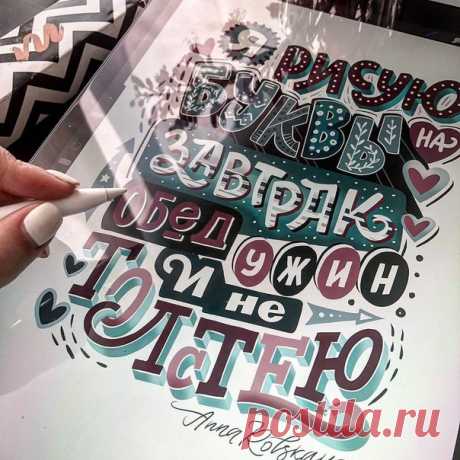 Я РИСУЮ
БУКВЫ НА
ЗАВТРАК
ОБЕД УЖИН
И не
ТОЛСТЕЮ
postila.ru